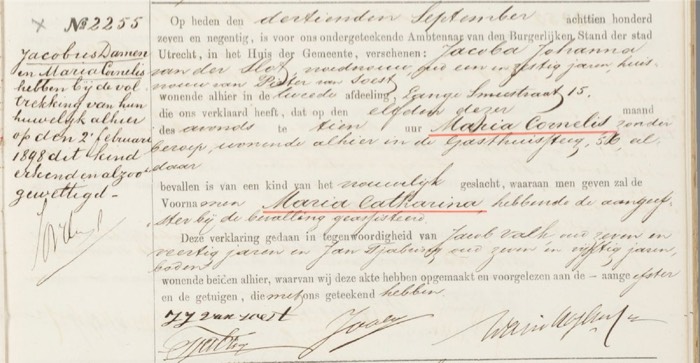 No 2255
Jacobus Damen
en Maria Cornelis
hebben bij de vol-
trekking van hun
huwelijk alhier
op den 2e februari
1898 dit kind
erkend en alzoo
gewettigd.-
Op heden den dertienden September achttien honderd
zeven en negentig, is voor ons ondergeteekende Ambtenaar van den Burgerlijken Stand der stad
Utrecht, in het Huis der Gemeente, verschenen: Jacoba Johanna
van der Slot, vroedvrouw, oud een en zestig jaren, huis-
vrouw van Pieter van Soest
wonende alhier in de tweede afdeeling, Lange Smeestraat 15.
die ons verklaard heeft, dat op den elfden dezer maand
des avonds te tien uur Maria Cornelis zonder
beroep, wonende alhier in de Gasthuissteeg, 56 al-
daar
bevallen is van een kind van het vrouwelijk geslacht, waaraan men geven zal de
Voornamen Maria Catharina hebbende de aangeef-
ster bij de bevalling geassisteerd.
Deze verklaring gedaan in tegenwoordigheid van Jacob Valk oud zeven en
veertig jaren en Jan oud zeven en vijftig jaren,
boden
wonende beiden alhier, waarvan wij deze akte hebben opgemaakt en voorgelezen aan de aangeefster
en de getuigen, die met ons geteekend hebben.
JJ van Soest